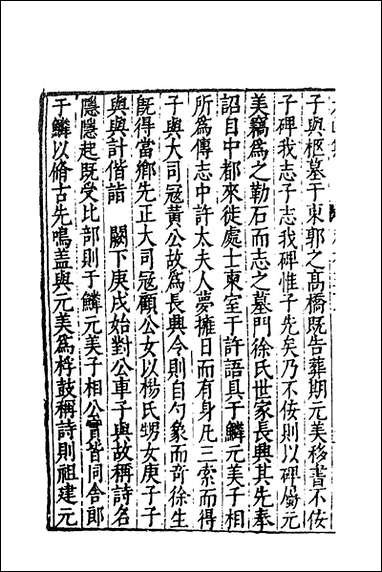 子與柩墓于東郭之高橋既告葬期元美移書不佞
子碑我志子志我碑惟子先矣乃不佞則以碑傷元
美竊為之勒石而志之墓門徐氏世家長興其先奉
詔自中都來徙處士東室于許語具于鱗元美子相
所為傳志中許太夫人夢擁日而有身凡三索而得
子與大司冦黃公故為長興令則自勺象而奇徐生
旣得當鄉先正大司冦顧公女以楊氏甥女庚子子
與與計偕詣 闕下庚戌始對公車子與故稱詩名
隱隱起既受比部則于鱗元美子相公實皆同舍郎
于鱗以脩古先鳴盖與元美為桴鼓稱詩則祖建元